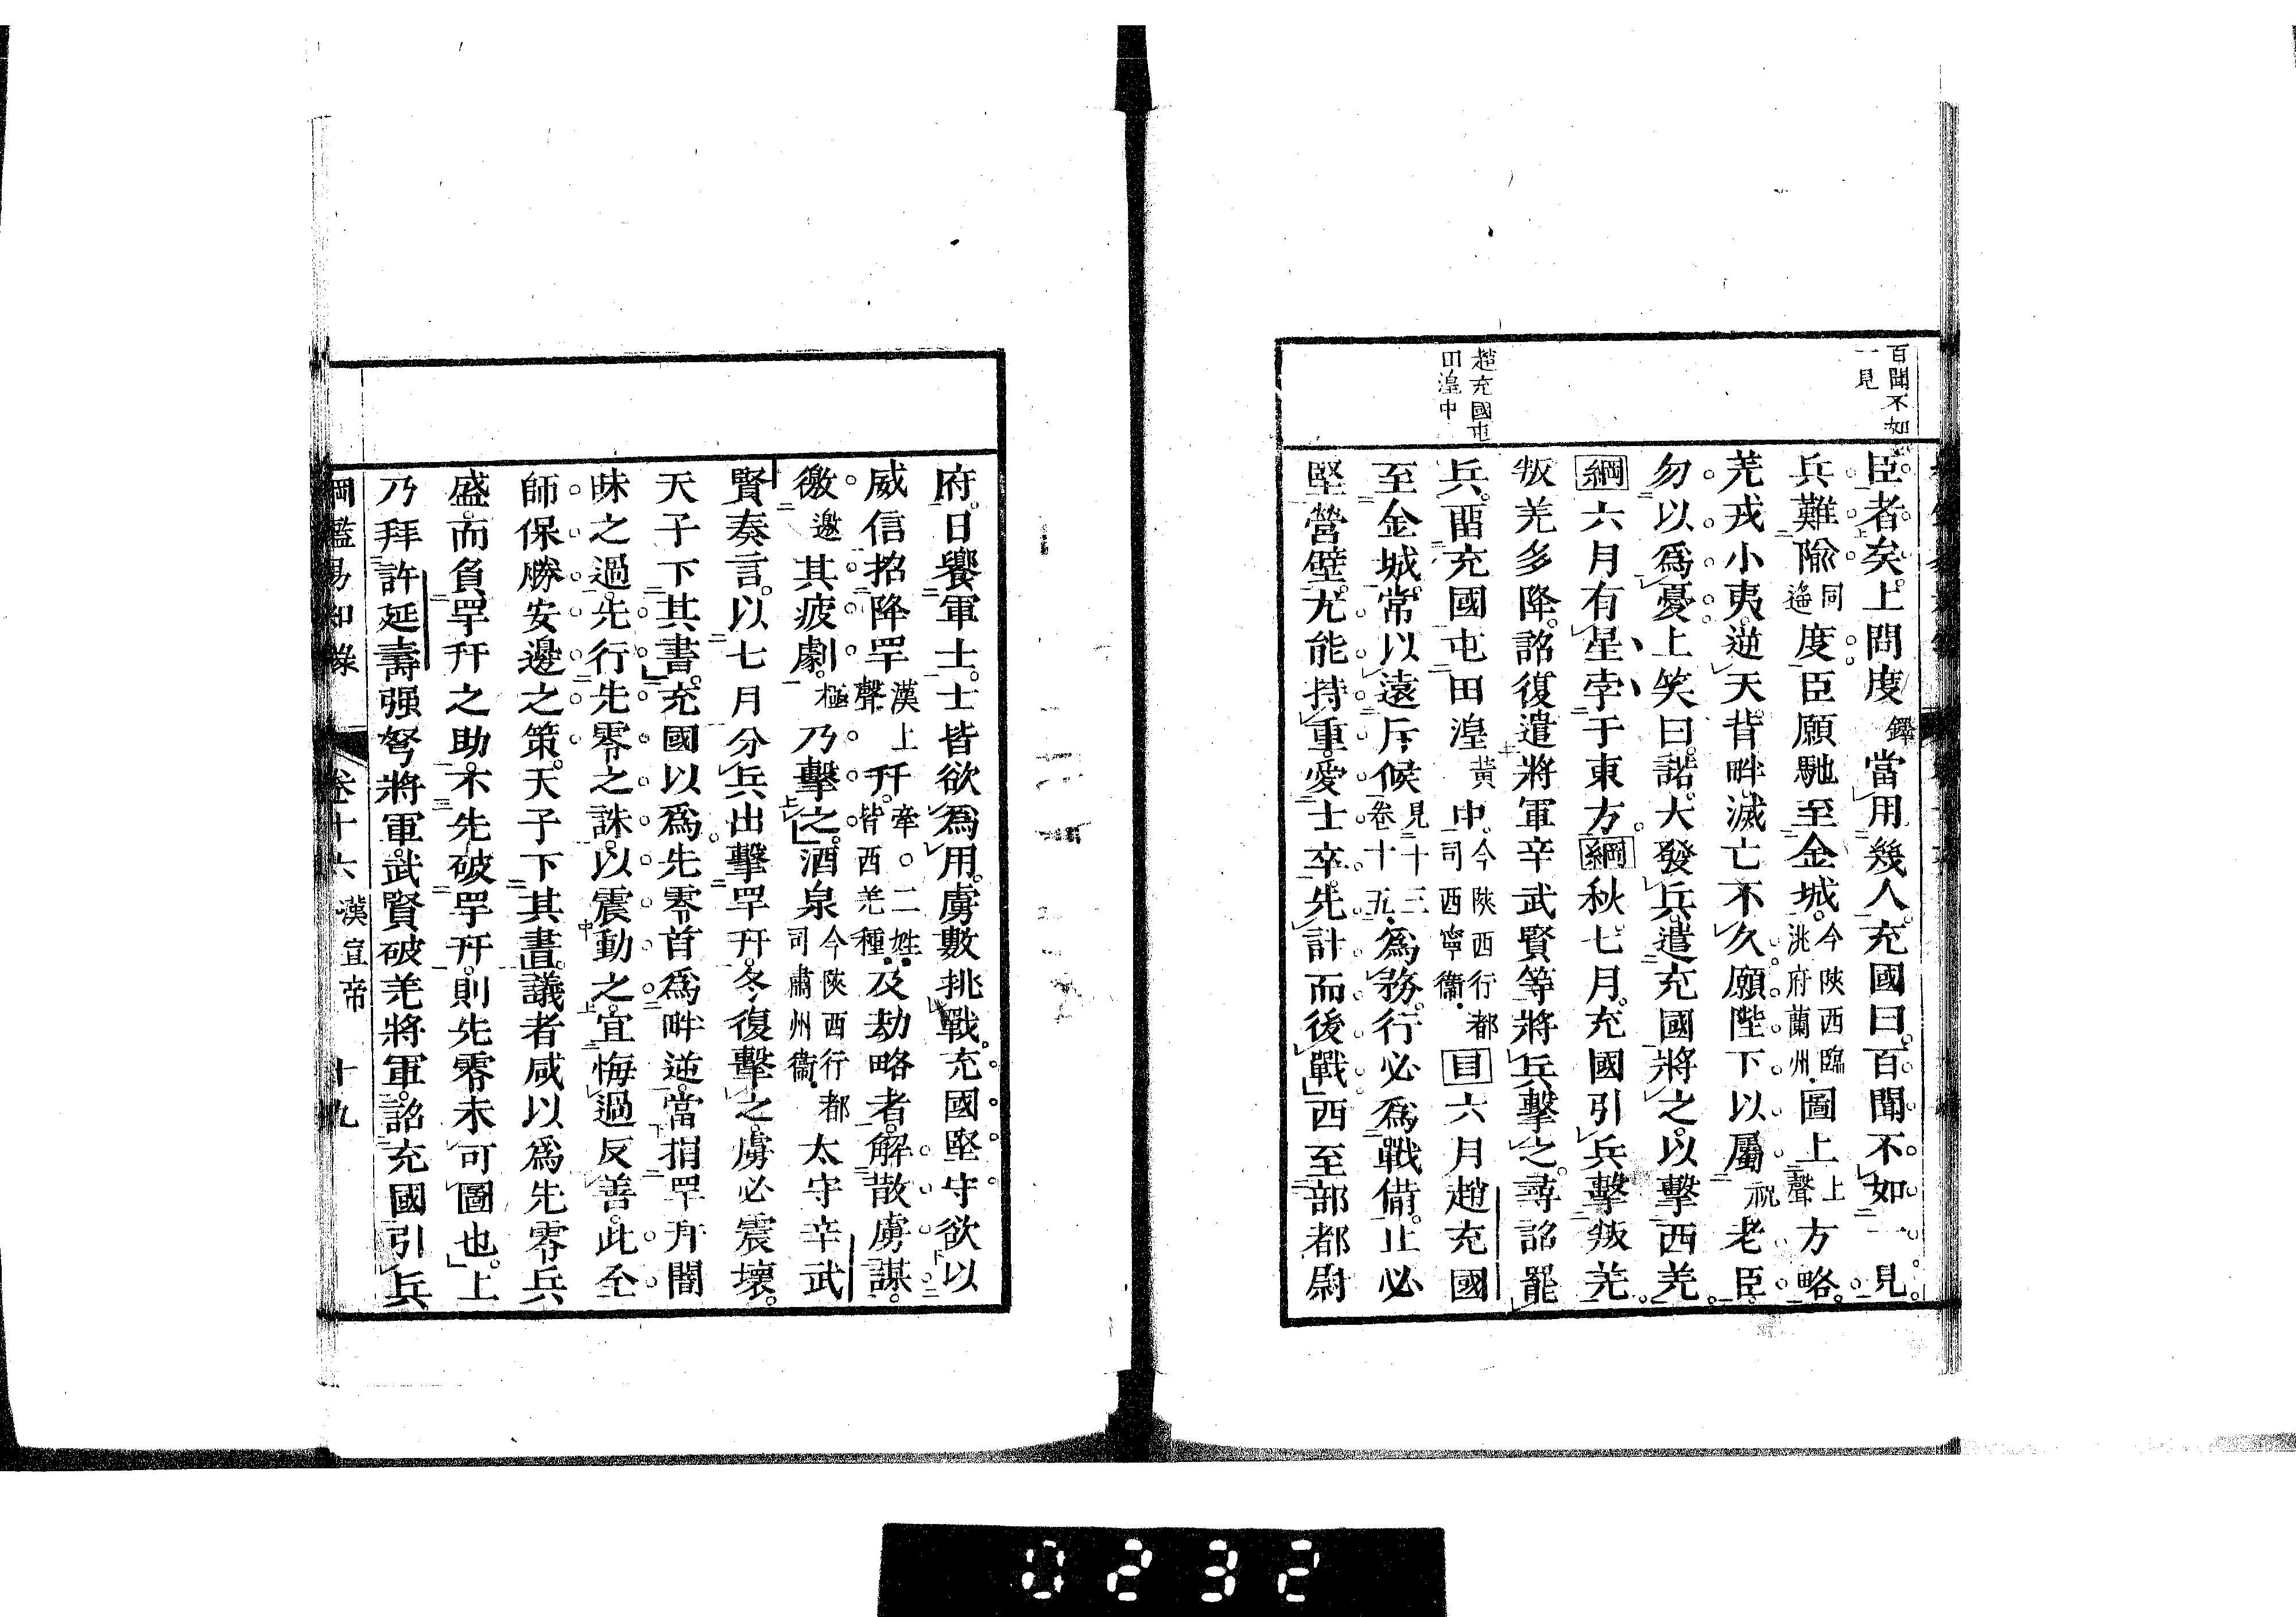 百聞不如
一見
趙充國屯
田湟中
臣者矣。上問度鐸當用幾人。充國曰。百聞不如一見。
兵難隃遙同度。臣願馳至金城。今陝西臨洮府蘭州。圖上上聲方略。
羌戎小夷。逆天背畔。滅亡不久。願陛下以屬祝老臣。
勿以爲憂。上笑曰。諾。大發兵。遣充國將之。以擊西羌。
綱六月有星孛于東方。綱秋七月。充國引兵擊叛羌。
叛羌多降。詔復遣將軍辛武賢等將兵擊之。尋詔罷
兵。畱充國屯田湟黃中。今陝西行都司西寧衞。目六月趙充國
至金城。常以遠斥候見二十三卷十五。爲務。行必爲戰備。止必
堅營壁。尤能持重。愛士卒。先計而後戰。西至部都尉
府。日饗軍士。士皆欲爲用。虜數挑戰。充國堅守。欲以
威信招降罕漢上聲幵。牽。○二姓皆西羌種。及劫略者。解散虜謀。
徼邀其疲劇。極乃擊之。酒泉今陝西行都司肅州衞。太守辛武
賢奏言。以七月分兵出擊罕幵。冬。復擊之。虜必震壞。
天子下其書。充國以爲先零首爲畔逆。當捐罕幵闇
昧之過。先行先零之誅。以震動之。宜悔過反善。此全
師保勝安邊之策。天子下其書。議者咸以爲先零兵
盛。而負罕幵之助。不先破罕幵。則先零未可圖也。上
乃拜許延壽强弩將軍。武賢破羌將軍。詔充國引兵
綱鑑易知錄 卷十六 漢宣帝 十九
0232